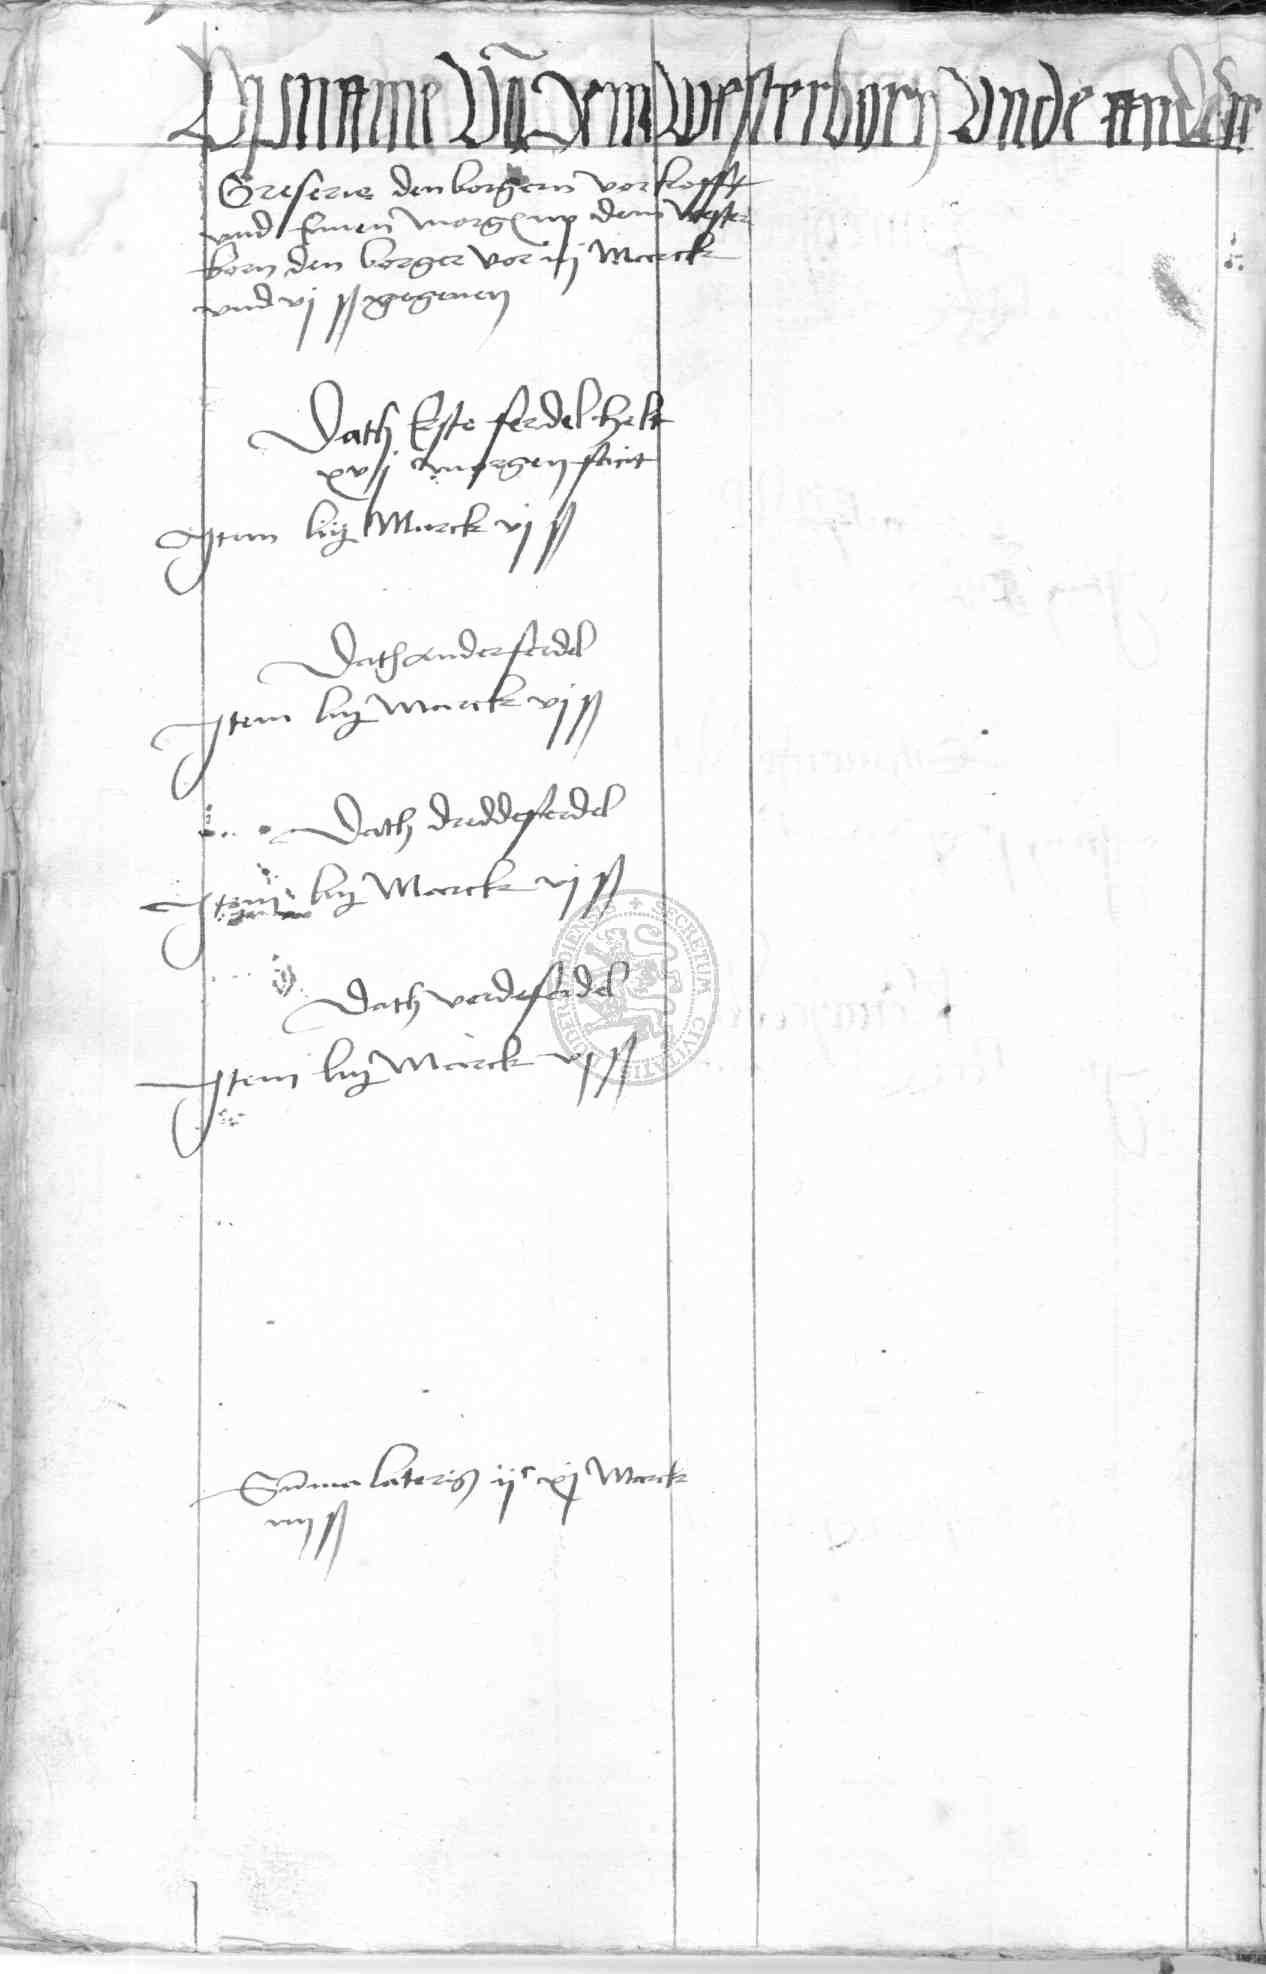 Upname Vā Dem Westerborn Vnde ander
Greserie den borgern vorkofft
vnd Einen morgē vp dem Wester
born den borger vor iij Marck
vnd vj ß gegeuen
Dath Erste ferdel helt
xvj morgen facit
Item lij Marck vj ß
Dath ander ferdel
Item lij Marck vj ß
Dath dridde ferdel
Item lij Marck vj ß
Dath verde ferdel
Item lij Marck vj ß
Sūma lateris ijc xj Marck
iiij ß
SECRETUM CIVITATIS